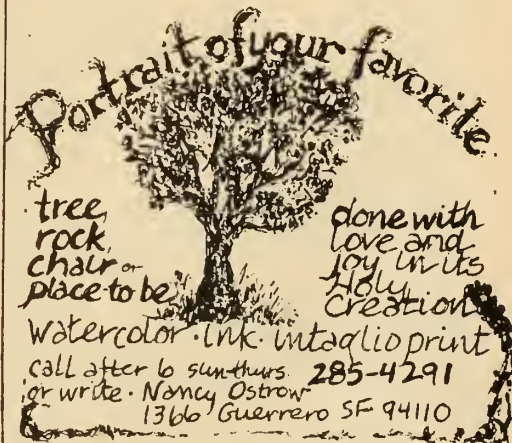 Portrait of your favorite
tree,
rock,
chair or
place to be
done with
love and
joy in its
Holy
Creation
watercolor · ink · intaglio print
call after 6 sun-thurs. 285-4291
or write · Nancy Ostrow
1366 Guerrero SF 94110